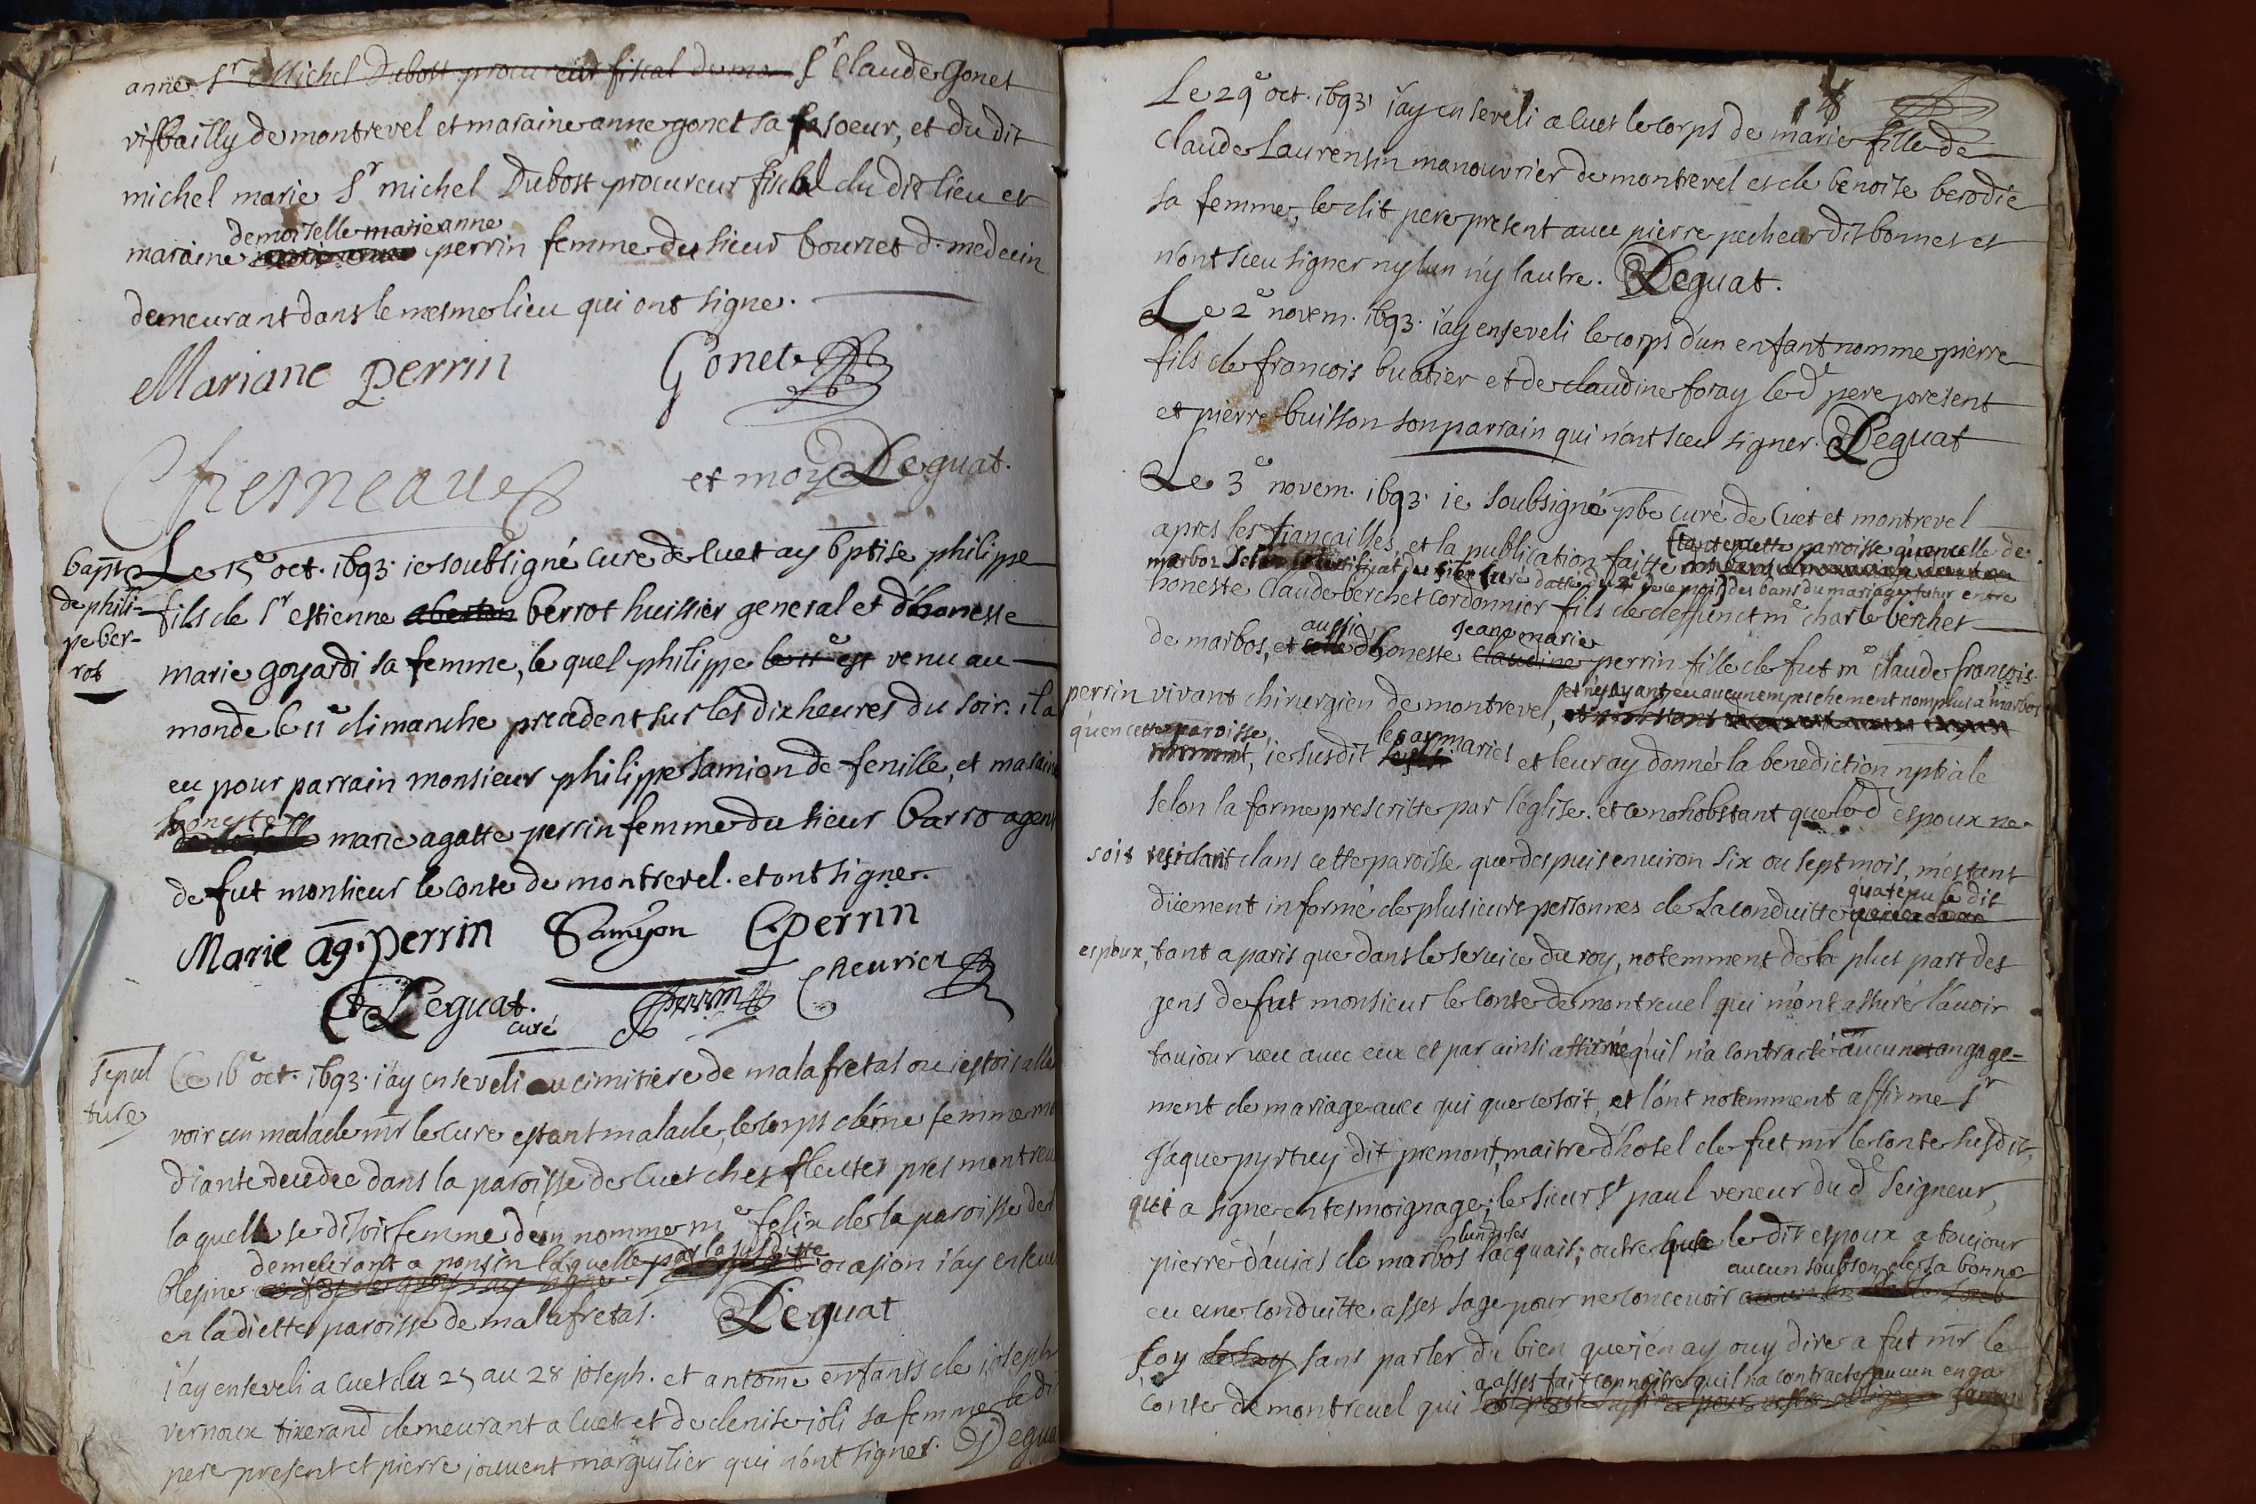 anne Sr Michel Dubost procureur fiscal de mo Sr Claude Gonet
vifbailly de montrevel et maraine anne gonet sa soeur, et du dit
michel marie Sr michel Dubost procureur fiscal du dit lieu et
demoiselle marie anne
maraine perrin femme du sieur bourret d. medecin
demeurant dans le mesme lieu qui ont signe.
Mariane Perrin Gonet
et moy Deguat.
bapt
de phili-
pe ber-
rot
Le 15e oct. 1693. ie soubsigné cure de Cuet ay bptise philippe
fils de Sr estienne berrot huissier general et d'honeste
marie goyardi sa femme, le quel philippe le 11e est venu au
monde le 11e dimanche precedent sur les dix heures du soir. il a
eu pour parrain monsieur philippe Samion de fenille, et maraine
honeste
marie agatte perrin femme du sieur barro agent
de fut monsieur le conte de montrevel. et ont signe.
Marie ag. perrin Samyon Cperrin
Deguat. curé perrin Cheurier
sepul
ture
Ce 16e oct. 1693. i'ay enseveli au cimitiere de malafretas ou iestois alle
voir un malade mr le cure estant malade, le corps d'une femme men
diante decedee dans la paroisse de Cuet ches fleutet pres montrevel
la quelle se disoit femme d'un nomme me felix de la paroisse de
demeurant a ponsin laquelle par la susditte
ocasion i'ay enseveli
en laditte paroisse de malafretas. Deguat
i'ay enseveli a Cuet du 25 au 28 ioseph. et antoine enfants de ioseph
vernoux tixerand demeurant a Cuet et de denise ioli sa femme le dit
pere present et pierre iouvent marguilier qui n'ont signer. Deguat
Le 29e oct. 1693. i'ay enseveli a Cuet le corps de marie fille de
Claude Laurensin manouvrier de montrevel et de benoite berodie
sa femme, le dit pere present avec pierre pecheur dit bonnet et
n'ont sceu signer ny lun n'y lautre. Deguat.
Le 2e novem. 1693. i'ay enseveli le corps d'un enfant nomme pierre
fils de francois buatier et de claudine foray le de pere present
et pierre buisson son parrain qui n'ont sceu signer. Deguat
Le 3e novem. 1693. ie soubsigné pbe curé de Cuet et montrevel
apres les fiançailles, et la publication faitte tant en cette parroisse qu'en celle de
marboz selon le certificat du sieur curé datté du 2e de ce mois des bans du mariage futur entre
honeste Claude berchet cordonnier fils de deffunct me charle berchet
aussi Jeane marie
de marbos, et d'honeste claudine perrin fille de fut me claude françois
perrin vivant chirurgien de montrevel, et n'y ayant eu aucun empeschement nomplus a marbos
qu'en cette paroisse,
ie susdit les ay mariés et leur ay donné la benediction nptiale
selon la forme prescritte par l'eglise. et ce nonobstant que le d espoux ne
soit residant dans cette paroisse que despuis environ six ou sept mois, m'estant
düement informé de plusieurs personnes de sa conduitte qu'a tenu le dit
espoux, tant a paris que dans le service du roy, notemment de la plus part des
gens de fut monsieur le conte de montrevel qui m'ont assuré l'avoir
toujour veu avec eux et par ainsi affirmé qu'il n'a contracté aucun angage-
ment de mariage avec qui que ce soit, et l'ont notemment affirme Sr
Jaque pyrtuy dit premont, maitre d'hotel de fut mr le conte susdit,
qui a signe en tesmoignage; le sieur St paul veneur du d seigneur,
pierre d'avias de marbos lun de ses lacquais; outre que le dit espoux a toujour
eu une conduitte asses sage pour ne concevoir aucun soubson de sa bonne
foy sans parler du bien que i'en ay ouy dire a fut mr le
conte de montrevel qui a asses fait connoitre qu'il n'a contracte aucun enga